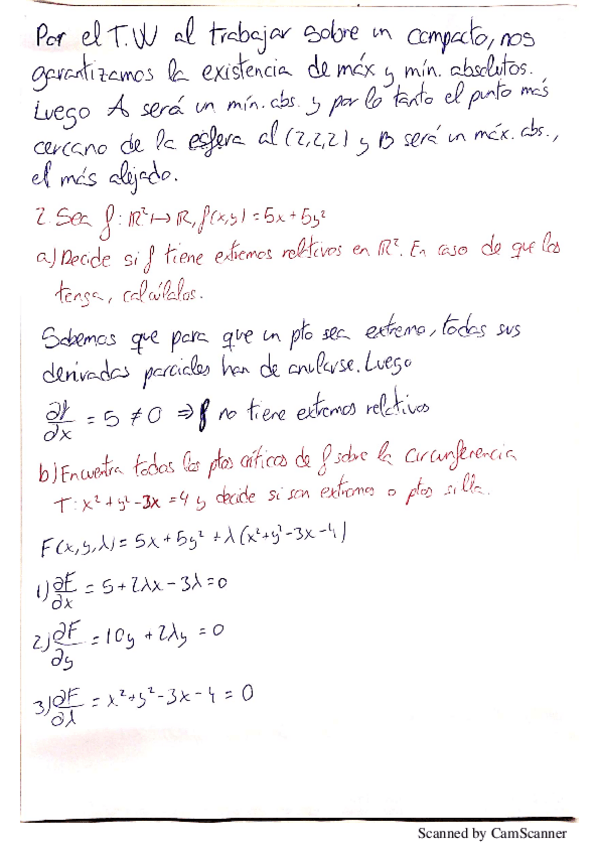 Por el T.W al trabajar sobre un compacto, nos
garantizamos la existencia de máx y mín. absolutos.
Luego A será un mín. abs. y por lo tanto el punto más
cercano de la esfera al (2,2,2) y B será un máx. abs.,
el más alejado.
2. Sea f: ℝ² ↦ ℝ, f(x,y) = 5x + 5y²
a) Decide si f tiene extremos relativos en ℝ². En caso de que los
tenga, calcúlalos.
Sabemos que para que un pto sea extremo, todas sus
derivadas parciales han de anularse. Luego
∂f/∂x = 5 ≠ 0 ⇒ f no tiene extremos relativos
b) Encuentra todos los ptos críticos de f sobre la circunferencia
T: x² + y² - 3x = 4 y decide si son extremos o ptos silla.
F(x,y,λ) = 5x + 5y² + λ(x² + y² - 3x - 4)
1) ∂F/∂x = 5 + 2λx - 3λ = 0
2) ∂F/∂y = 10y + 2λy = 0
3) ∂F/∂λ = x² + y² - 3x - 4 = 0
Scanned by CamScanner